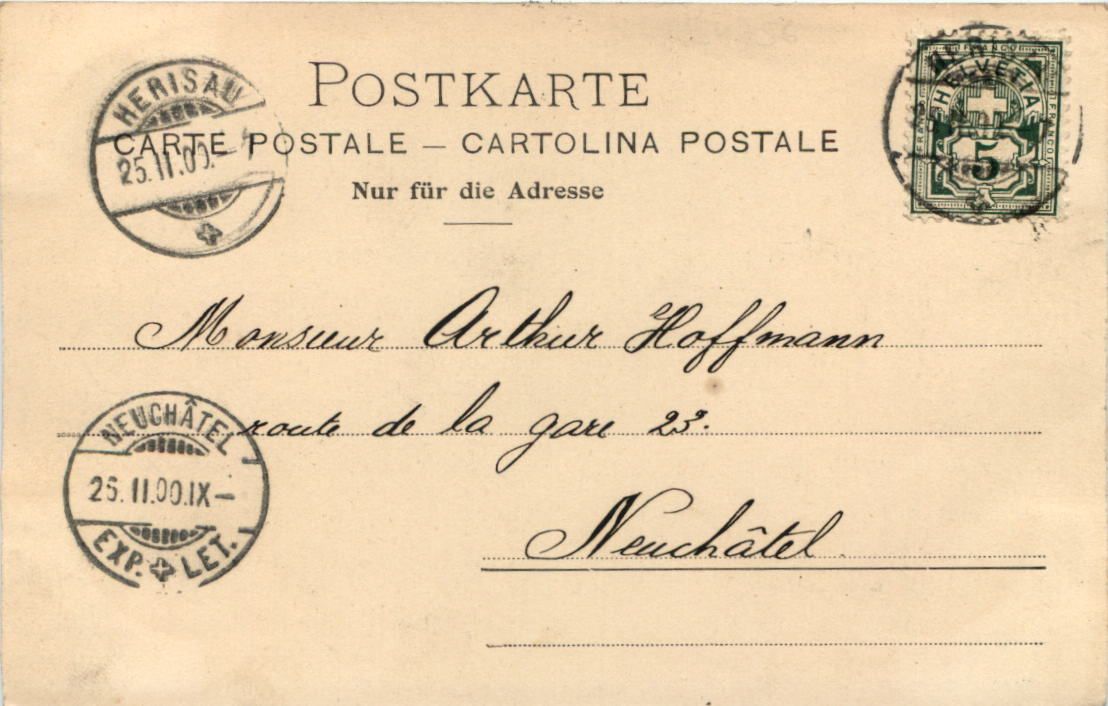 POSTKARTE
CARTE POSTALE — CARTOLINA POSTALE
Nur für die Adresse
HERISAU
25.II.00.–
FRANCO
HELVETIA
5
Monsieur Arthur Hoffmann
route de la gare 23.
Neuchâtel.
NEUCHÂTEL
26.II.00.IX–
EXP. LET.